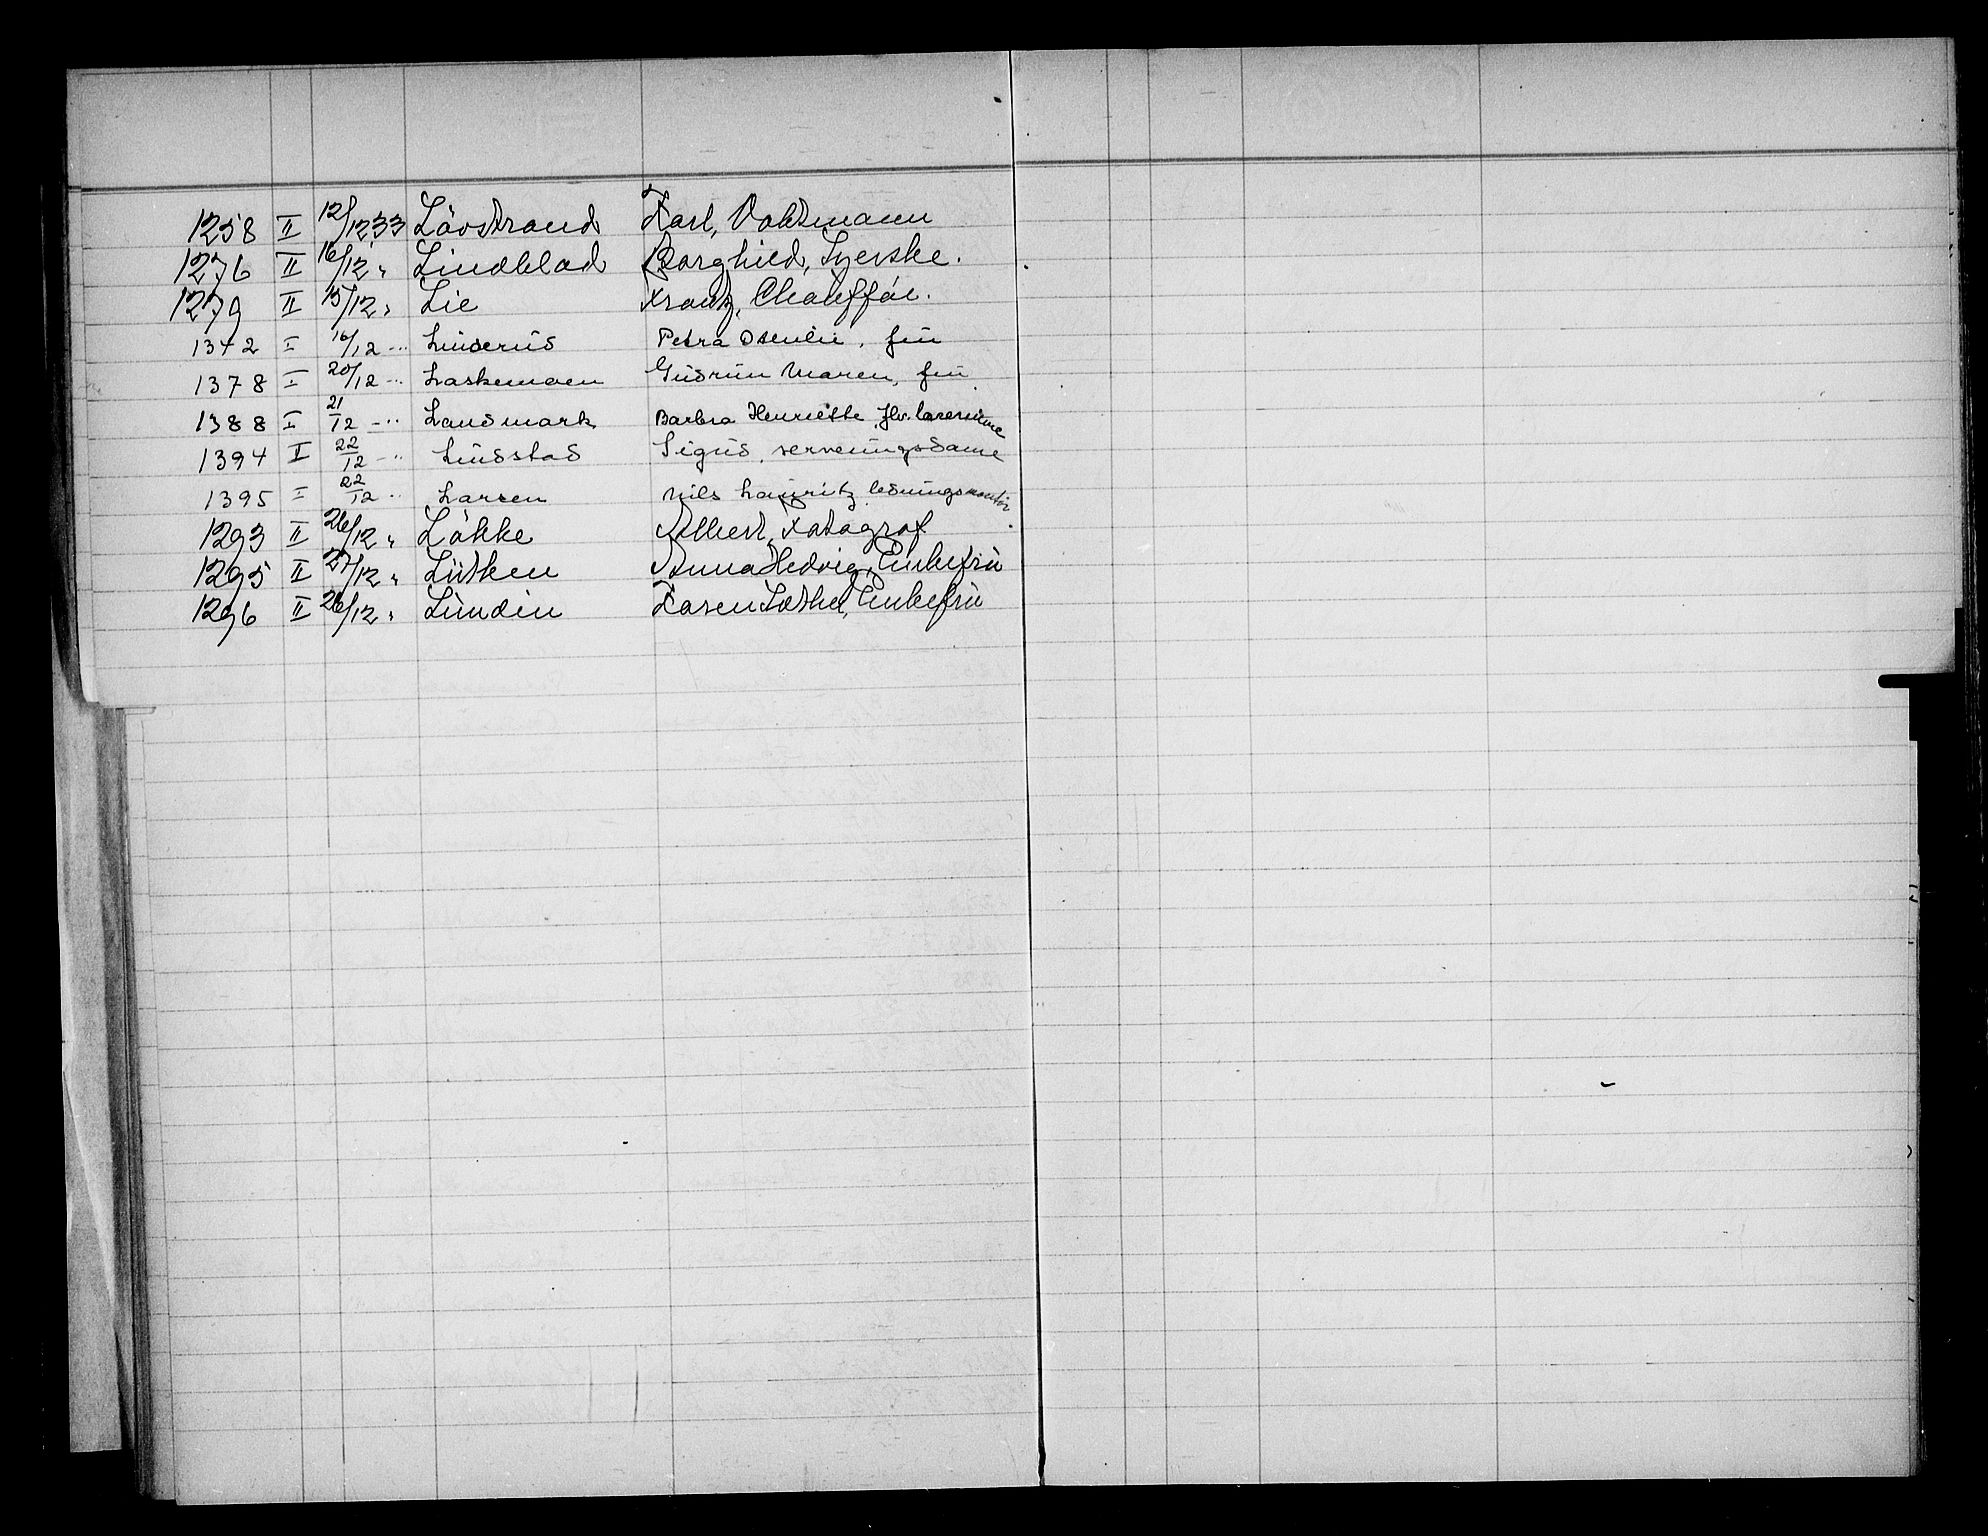 1258 II 12/12 33 Lövstrand Karl, Vaktmann
1276 II 16/12 " Lindblad Borghild, Syerske.
1279 II 15/12 " Lie Frantz, Chauffør.
1372 I 16/12 -" Linderud Petra Otenlie, frü
1378 I 20/12 -" Laskemoen Gudrün Maren, frü
1388 I 21/12 -" Landmark Barbra Henriette, fhv. lærerinne
1394 I 22/12 -" Lüdstad Sigrid, serveringsdame
1395 I 22/12 -" Larsen Nils Lauritz ledningsmontör
1293 II 26/12 " Løkke Albert, Fotograf
1295 II 27/12 " Lütken Anna Hedvig, Enkefrü
1296 II 26/12 " Lündin Karen Lothe, Enkefrü